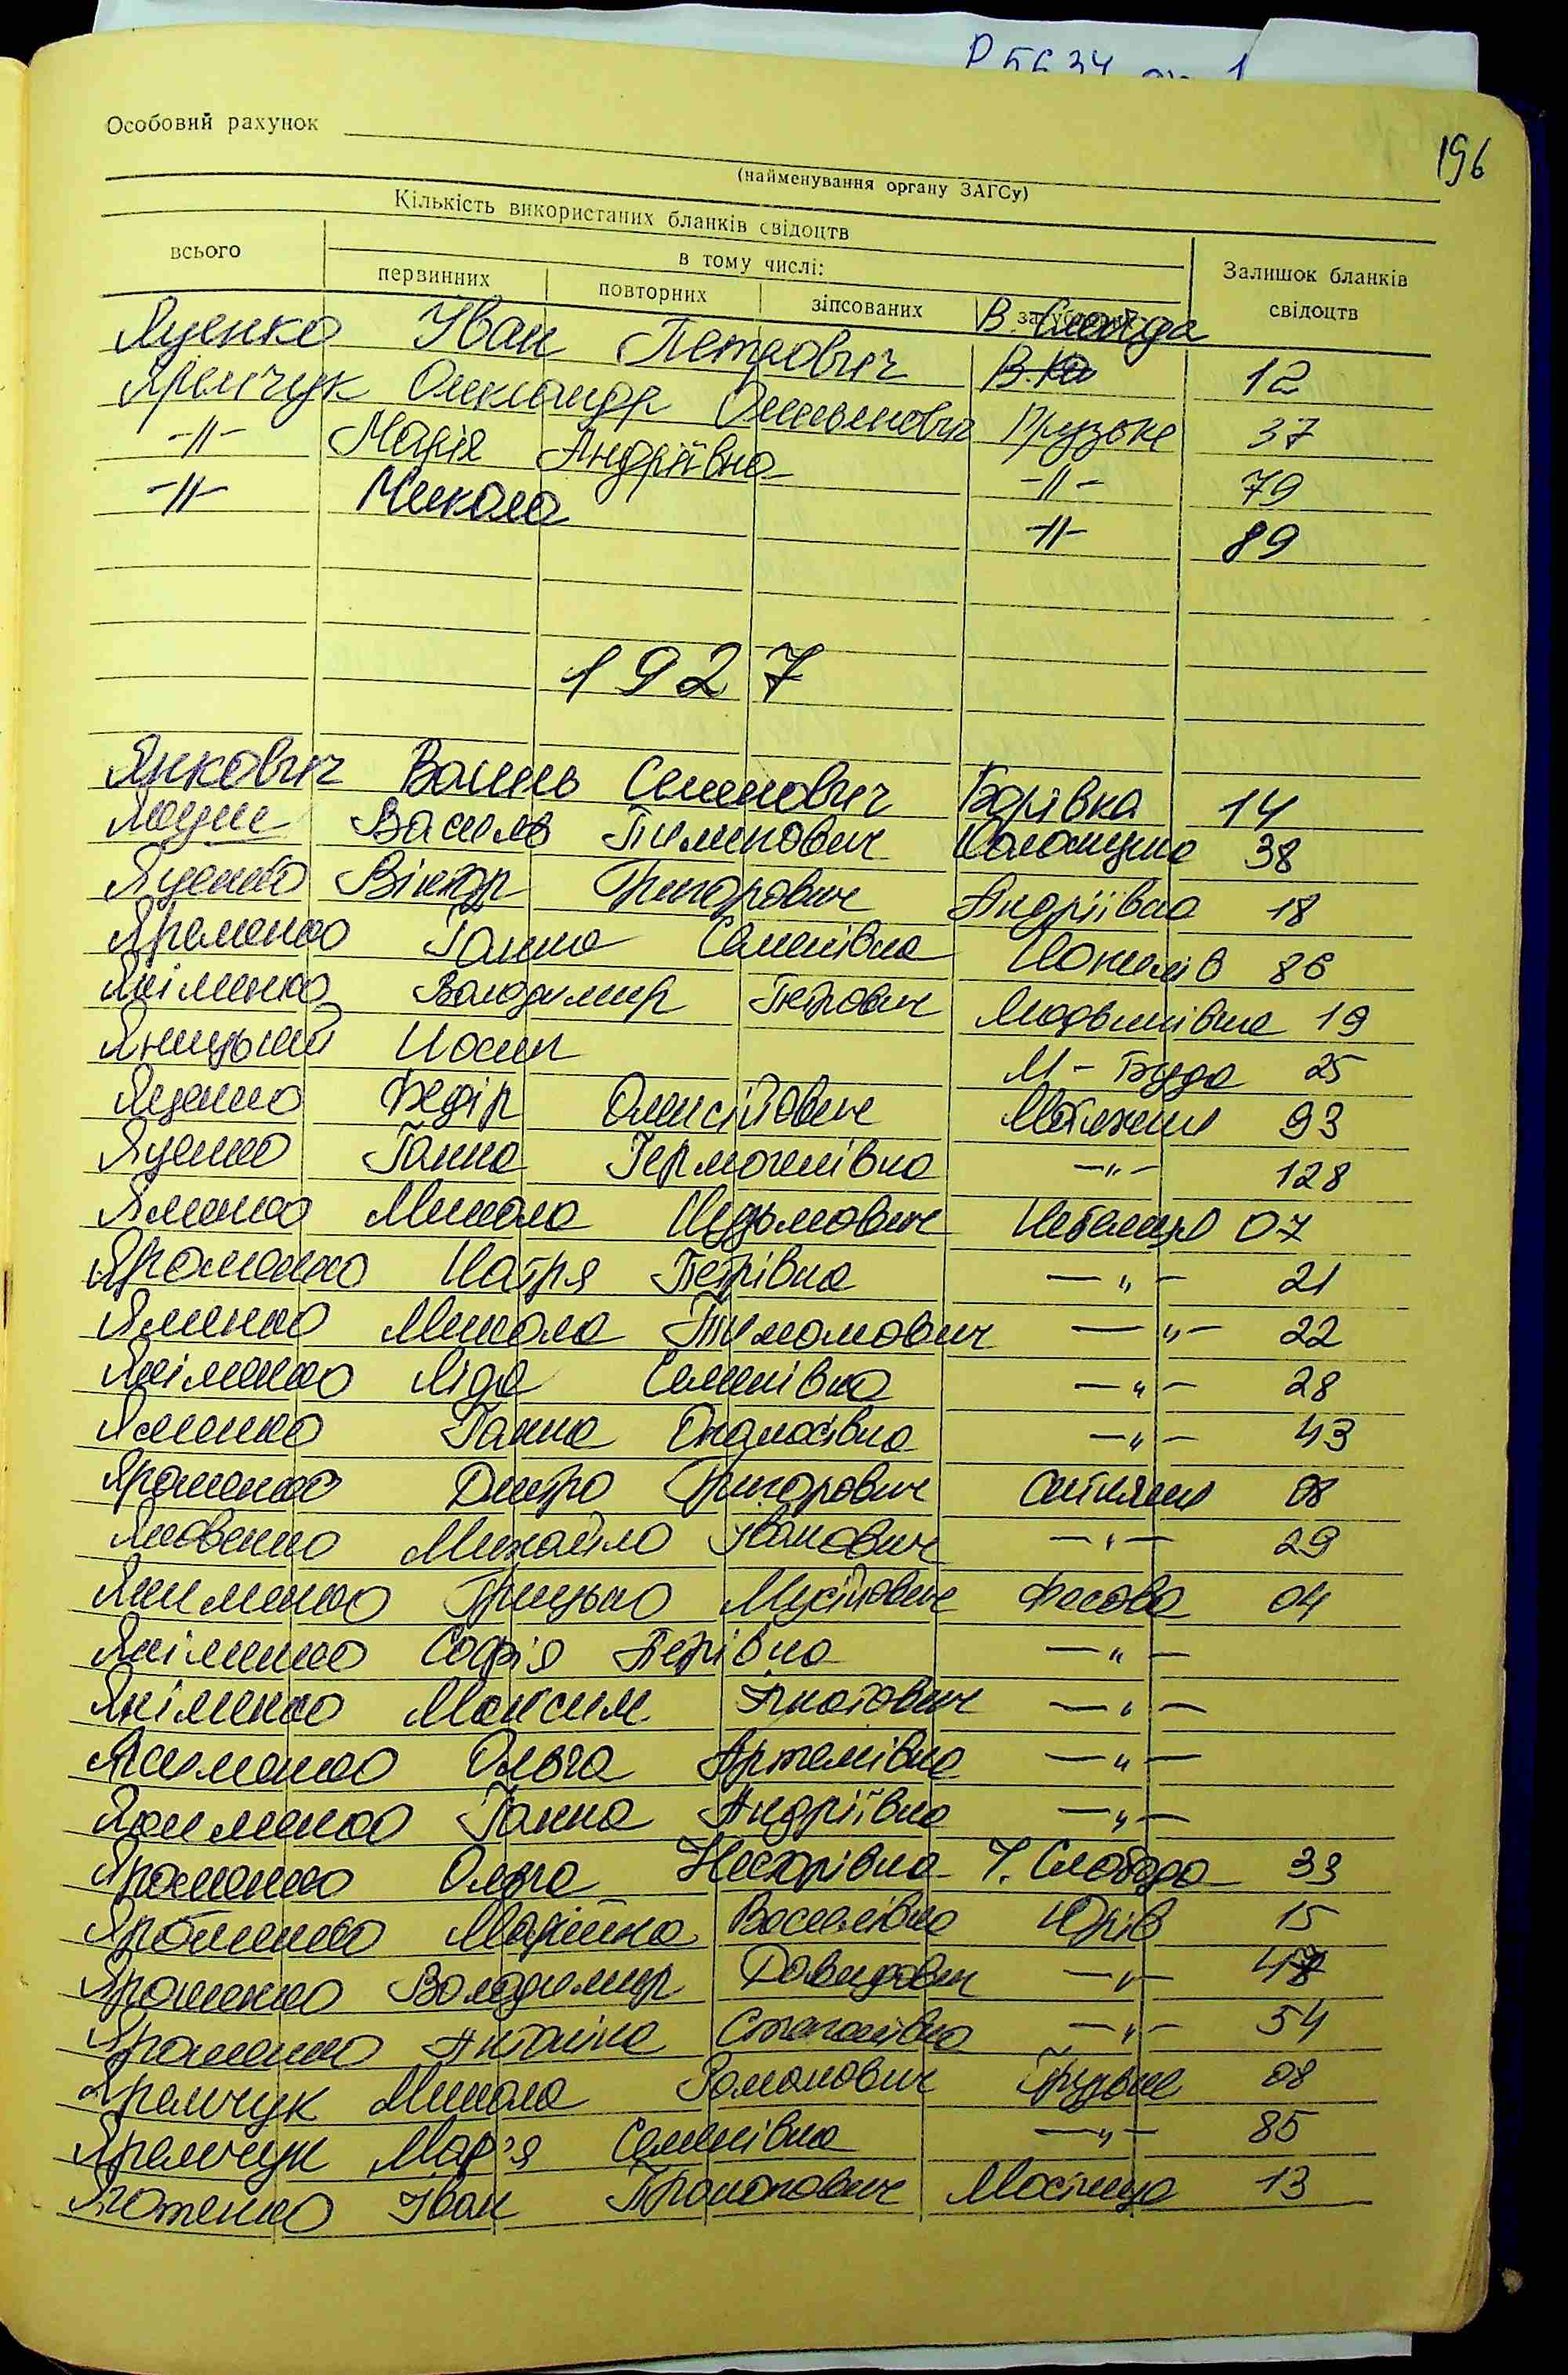 Р 5634 оп 1
196
Особовий рахунок
(найменування органу ЗАГСу)
Кількість використаних бланків свідоцтв
всього
в тому числі:
первинних повторних зіпсованих
Залишок бланків свідоцтв
Яценко Іван Петрович В. 12
Яремчук Олександр Омелянович Грузьке 37
-//- Марія Андріївна -//- 79
-//- Микола -//- 89
1927
Янкович Василь Семенович Борівка 14
Василь Пименович 38
Яценко Віктор Григорович Андріївка 18
Яременко Ганна Семенівна 86
Якіменко Володимир Петрович Людвинівка 19
Яницький Йосип М-Буда 25
Яценко Федір Олексійович Мотижин 93
Яценко Ганна Гермогенівна -"- 128
Яменко Микола Кузьмович Небелиця 07
Яроменко Настя Петрівна -"- 21
Яменко Микола -"- 22
Якіменко Ліда Семенівна -"- 28
Яменко Ганна Опанасівна -"- 43
Яроменко Дмитро Григорович Ситняки 08
Яковенко Михайло Іванович -"- 29
Якименко Грицько Мусійович Фасова 04
Якіменко Софія Петрівна -"-
Якіменко Максим Гнатович -"-
Якименко Ольга Артемівна -"-
Якименко Ганна Андріївна -"-
Ольга Несторівна Ч. Слобода 33
Марійка Василівна Юрів 15
Володимир Давидович -"-
Антоніна Степанівна -"- 54
Яремчук Микола Романович Грузьке 08
Яремчук Мар'я Семенівна -"- 85
Іван Прокопович Мостище 13